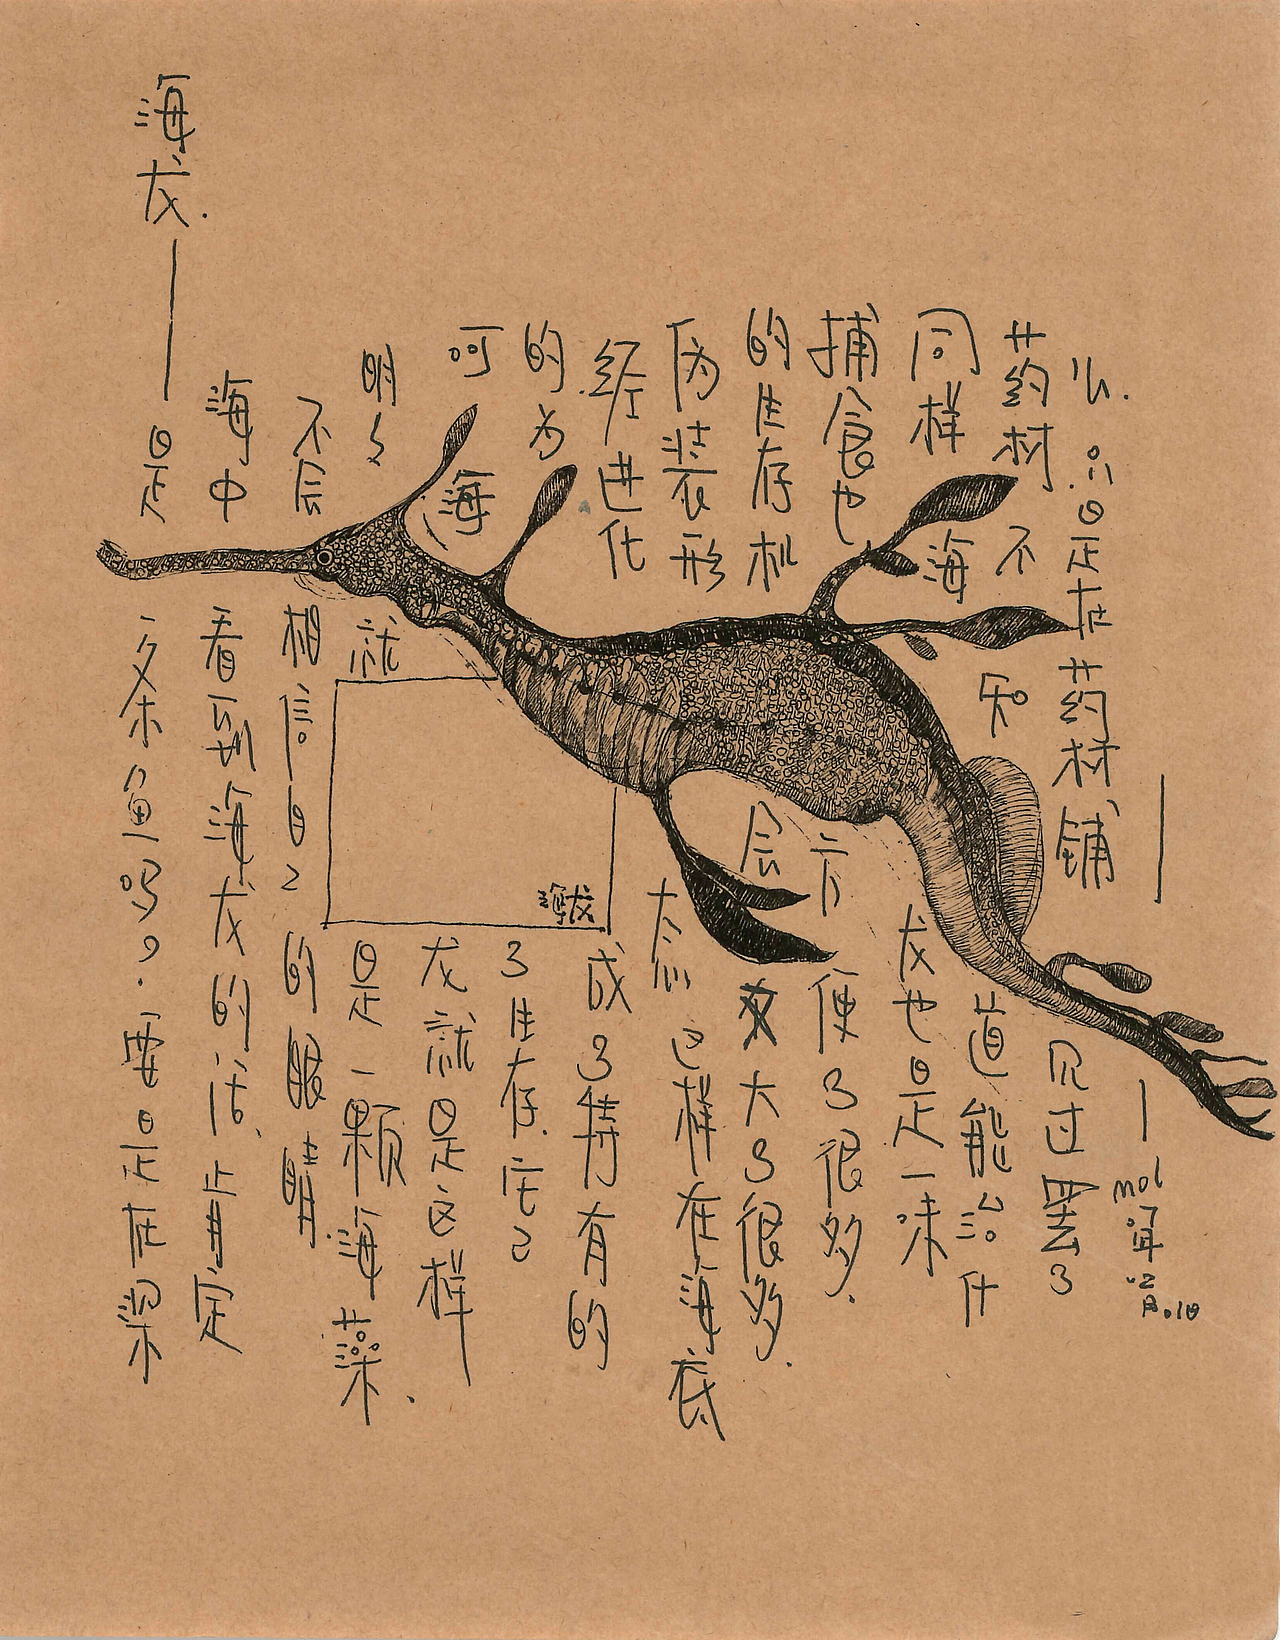 海龙.——是一条鱼吗?.要是在深
海中看到海龙的话、肯定
不会相信自己的眼睛.
明明就是一颗海藻.
呵海龙就是这样
的为了生存.它已
经进化成了特有的
伪装形态这样在海底
的生存机会大了很多.
捕食也方便了很多.
同样海龙也是一味
药材.不知道能治什
么.只是在药材铺见过罢了
——mol
海龙